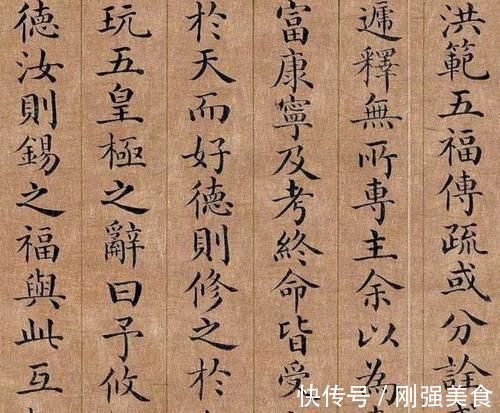 洪範五福傳疏或分詮
遞釋無所專主余以為
富康寧及考終命皆受
於天而好德則修之於
玩五皇極之辭曰予攸
德汝則錫之福與此互
快传号／刚强美食